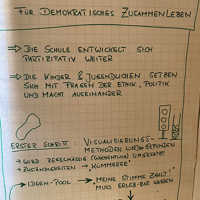 FÜR DEMOKRATISCHES ZUSAMMENLEBEN
→ DIE SCHULE ENTWICKELT SICH
PARTIZIPATIV WEITER
→ DIE KINDER & JUGENDLICHEN SETZEN
SICH MIT FRAGEN DER ETHIK, POLITIK
UND MACHT AUSEINANDER
ERSTER SCHRITT: VISUALISIERUNGS-
METHODEN
→ WIRD REGELMÄSSIG
→ "KÜMMERER"
IDEEN-POOL → "MEINE STIMME ZÄHLT!"
MUSS ERLEB-BAR WERDEN